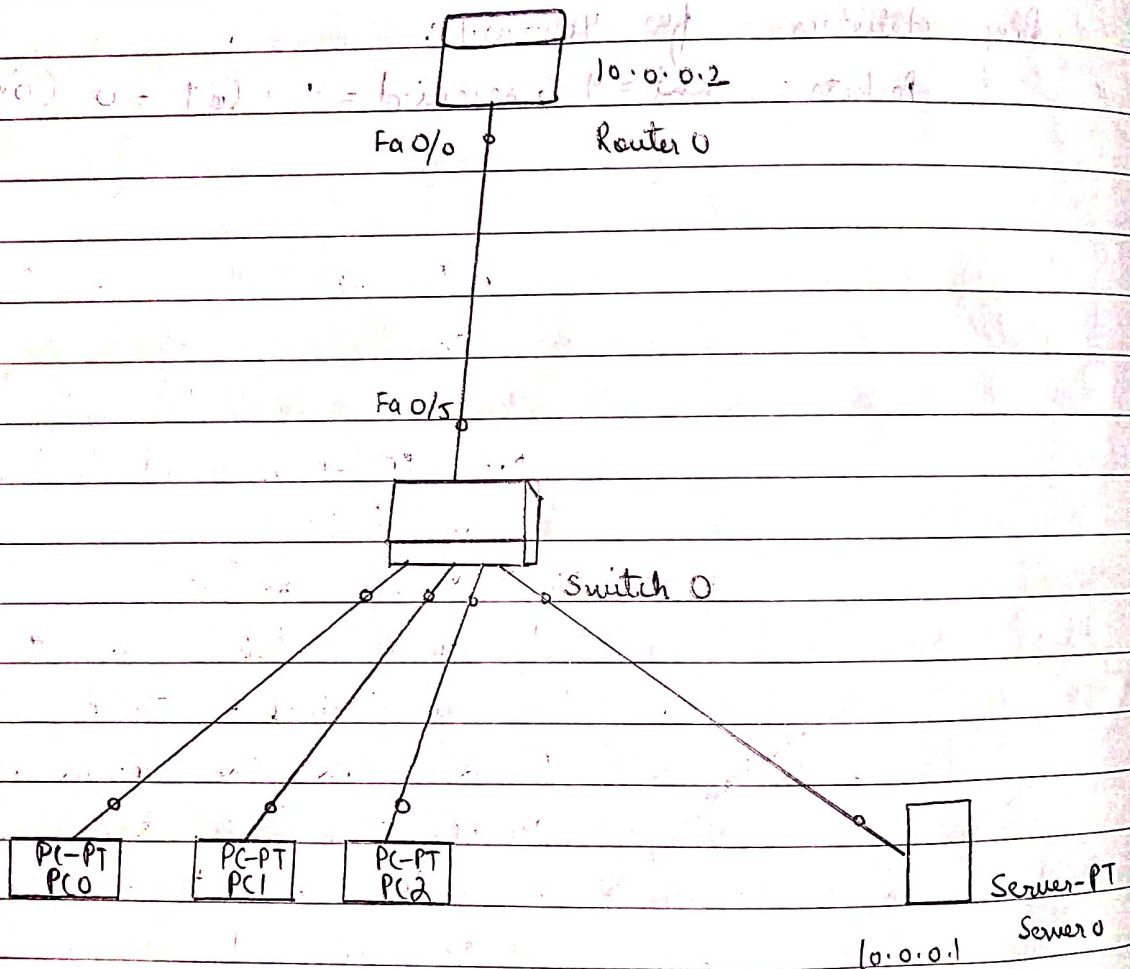 10.0.0.2
Fa 0/0
Router 0
Fa 0/5
Switch 0
PC-PT
PC0
PC-PT
PC1
PC-PT
PC2
Server-PT
Server 0
10.0.0.1